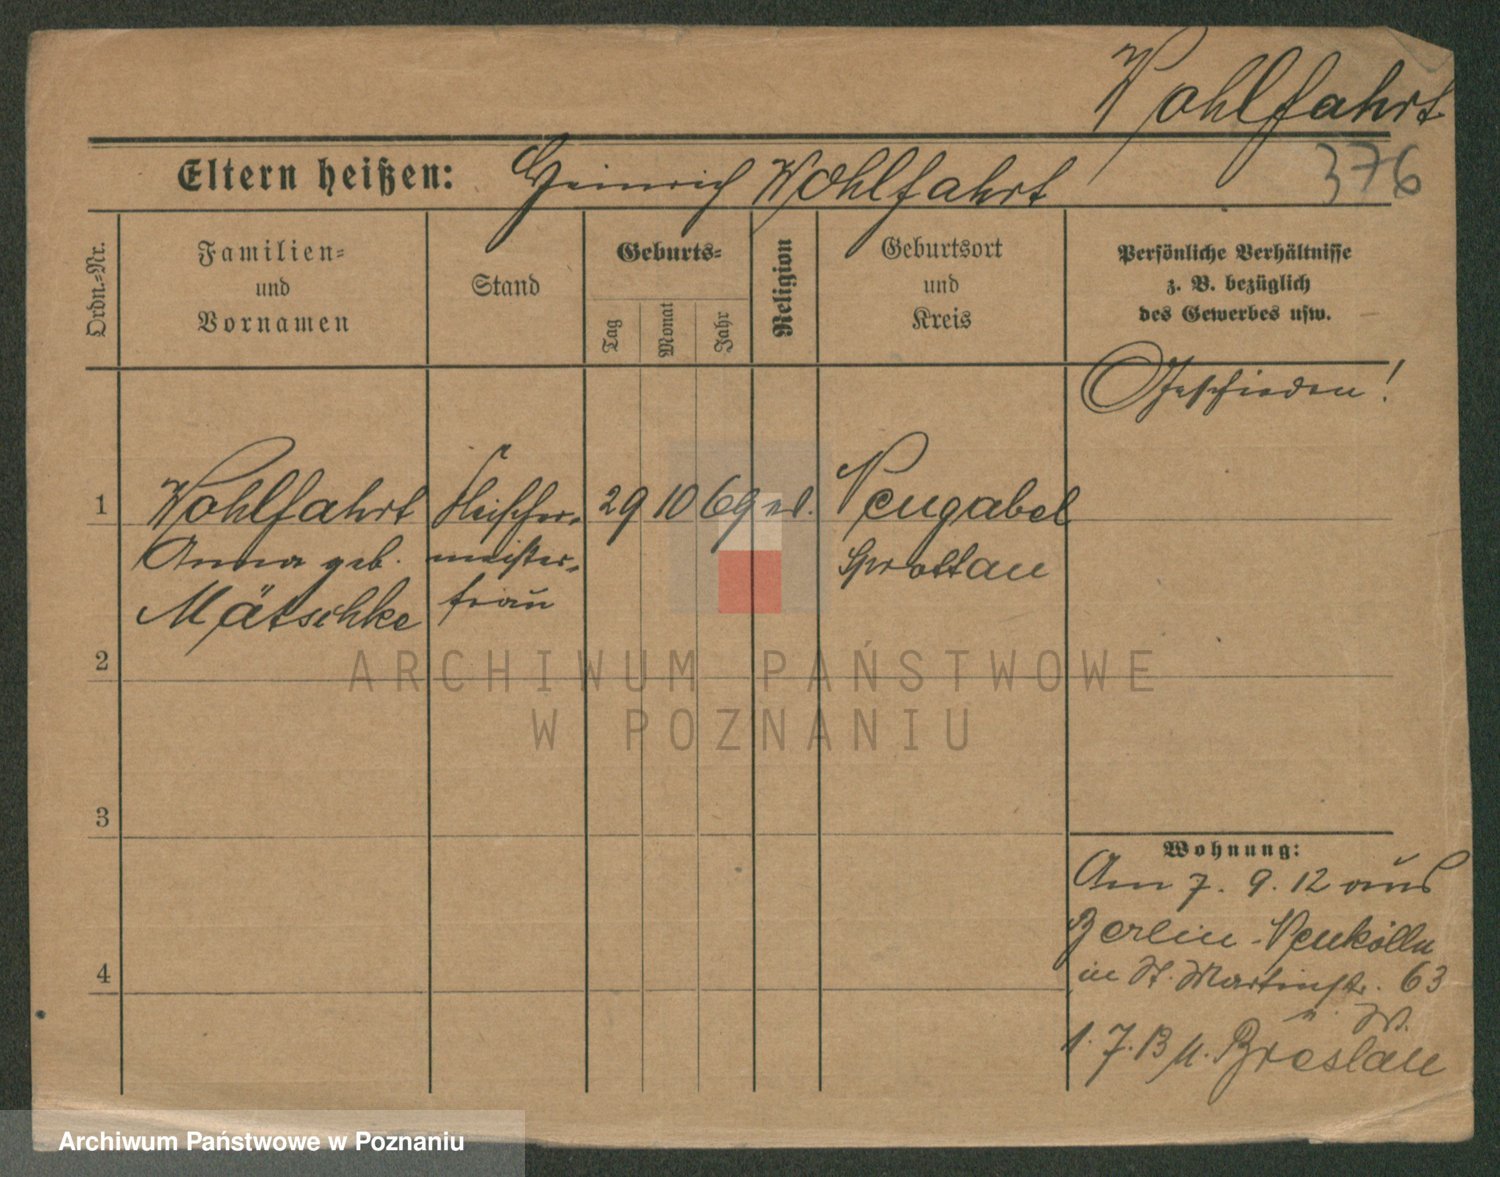 Wohlfahrt
376
Eltern heißen: Heinrich Wohlfahrt
Ordn.-Nr.
Familien-
und
Vornamen
Stand
Geburts-
Tag
Monat
Jahr
Religion
Geburtsort
und
Kreis
Persönliche Verhältnisse
z. B. bezüglich
des Gewerbes usw.
Geschieden!
1 Wohlfahrt Fleischer- 29 10 69 ev. Neugabel
Anna geb. meister- Sprottau
Mätschke frau
2
3
4
Wohnung:
Am 7. 9. 12 aus
Berlin-Neukölln
in St. Martinstr. 63
1. 7. 13 n. Breslau
ARCHIWUM PAŃSTWOWE
W POZNANIU
Archiwum Państwowe w Poznaniu